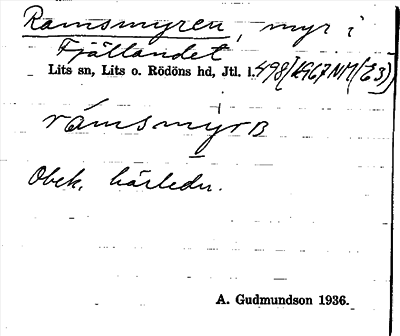 Ramsmyren, myr i
Fjällandet
Lits sn, Lits o. Rödöns hd, Jtl. l.
rámsmyrB
Obek. härledn.
A. Gudmundson 1936.